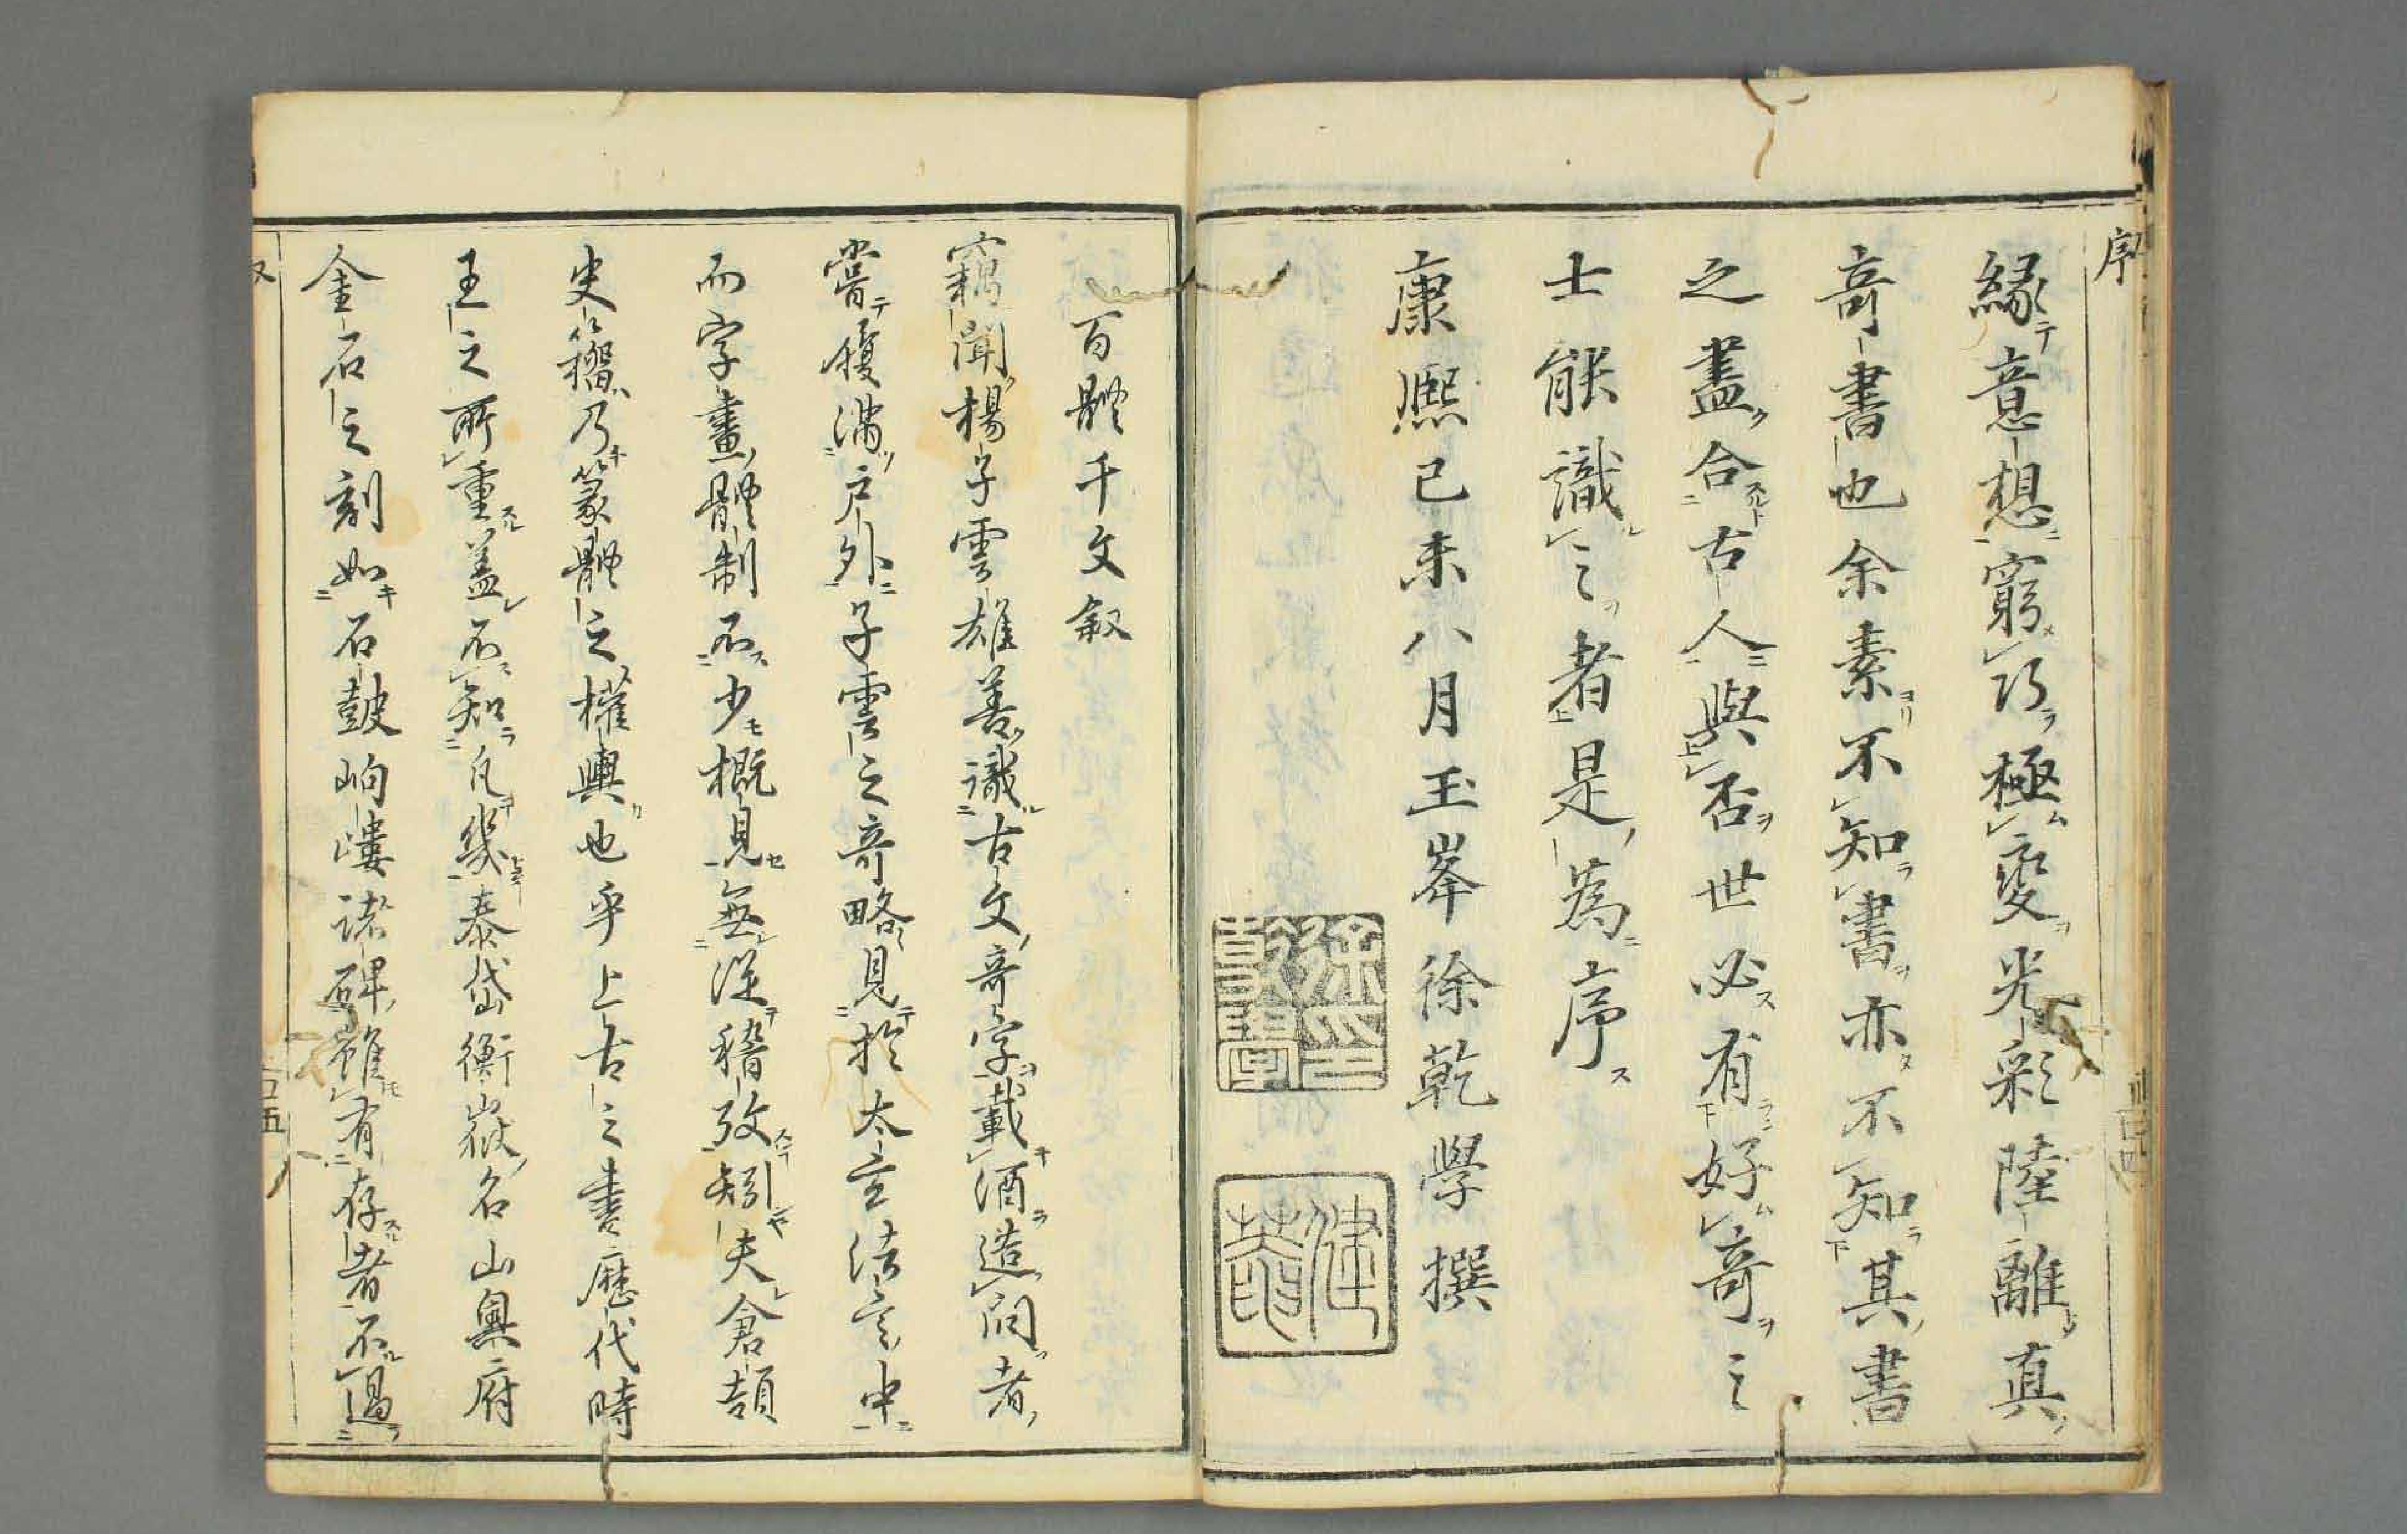 序
緣意想窮巧極變光彩陸離真
奇書也余素不知書亦不知其書
之盡合古人與否世必有好奇之
士能識之者是為序
康熙己未八月玉峯徐乾學撰
徐乾學印
健菴
百體千文叙
竊聞楊子雲雄善識古文奇字載酒造問者
嘗履滿戶外子雲之奇略見於太玄法言中
而字畫體制不少概見無從稽攷矧夫倉頡
史籀乃篆體之權輿也乎上古之書歷代時
王之所重盖不知凡幾泰岱衡嶽名山奥府
金石之刻如石鼓岣嶁諸碑雖有存者不過